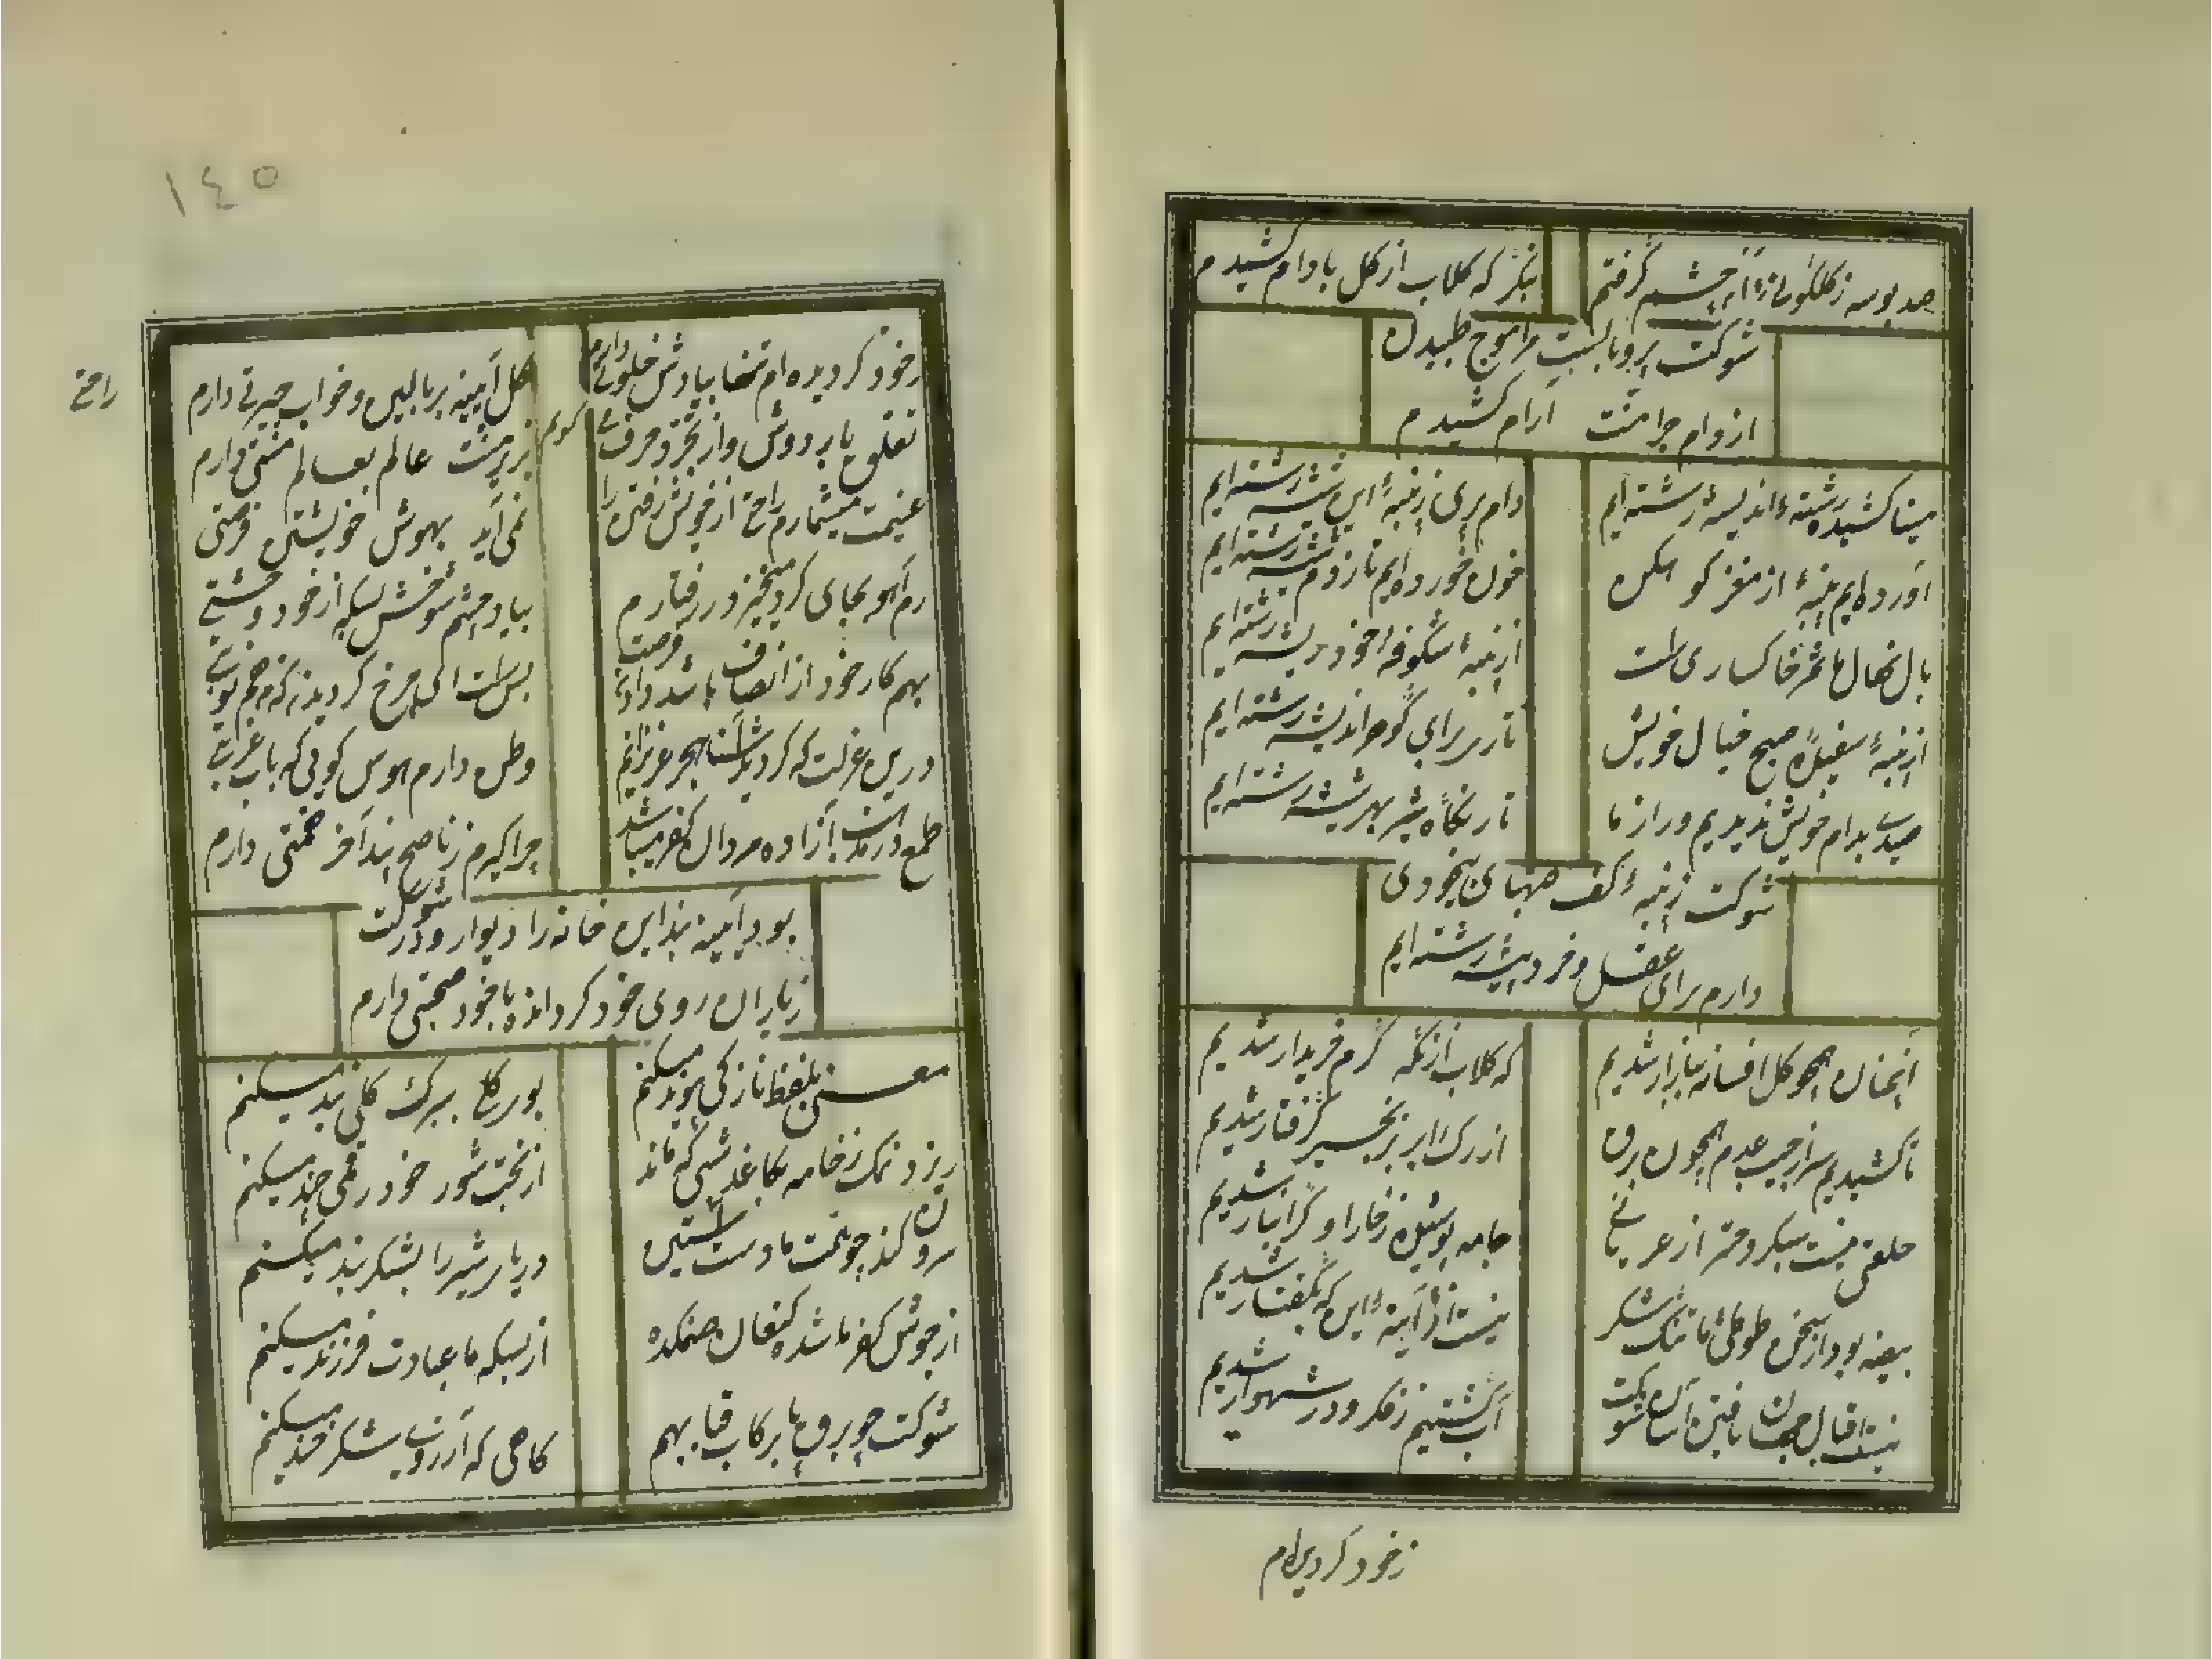 صد بوسه ز گلگونی از چشم گرفتم
بنگر که گلاب از گل بادام کشیدم
شوکت پر و بالیست مرا موج طپیدن
از دام چرا منت آرام کشیدم
مینا کشیده رشتهٔ اندیشه رشته‌ایم
دام پری ز پنبهٔ این شیشه رشته‌ایم
آورده‌ایم پنبهٔ از مغز کوهکن
خون خورده‌ایم تا ز دم تیشه رشته‌ایم
بال نهال ما ثمر خاکساری است
از پنبهٔ شکوفهٔ خود ریشه رشته‌ایم
از پنبهٔ سفیدهٔ صبح خیال خویش
تاری برای گوهر اندیشه رشته‌ایم
صیدی بدام خویش ندیدیم دور از ما
تار نگاه شیر بهر بیشه رشته‌ایم
شوکت ز پنبهٔ کف صهبای بیخودی
دارم برای عقل و خرد پیشه رشته‌ایم
آنچنان همچو گل افسانه ببازار شدیم
که گلاب از نگه گرم خریدار شدیم
تا کشیدیم سر از جیب عدم همچون برق
از رگ ابر بزنجیر گرفتار شدیم
خلعتی نیست سبکروح‌تر از عریانی
جامه پوشیده ز خارا و گرانبار شدیم
بیضه بود از سخن طوطی ما تنگ شکر
نیست از آینهٔ این که بگفتار شدیم
نیست اقبال جهان یافتن آسان شوکت
آب گشتیم ز فکر و در شهوار شدیم
ز خود گردیده‌ام
۱٤٥
ز خود گردیده‌ام تنها بیادش خلوتی دارم
گل آیینه بر بالین و خواب حیرتی دارم
تعلق پا بر دوش و از تجرد حرف میگویم
بزیر پشت عالم بعالم منتی دارم
غنیمت میشمارم راحت از خویش رفتن را
نمی‌آید بهوش خویشتن فرصتی
رم آهو بجای گرد میخیزد ز رفتارم
بیاد چشم شوخش بسکه از خود وحشتی
بهم کار خود از انصاف باشد دادن فرصت
بس است ای چرخ گردیدن که من هم نوبتی
درین عزلت که گردید آشنا هجر عزیزانم
وطن دارم هوس گویی که باب غربتی
طمع در مذهب آزاده مردان کفر میباشد
چرا گیرم ز ناصح پند آخر همتی دارم
بود آیینه بند این خانه را دیوار و در شوکت
ز یاران روی خود گردانده با خود صحبتی دارم
راحت
معنی بلفظ نازکی پیوند میکنم
بوی گل ببرگ گلی بند میکنم
ریزد نمک ز خامه بکاغذ شبی که ماند
از بخت شور خود رقمی چند میکنم
بیرون کند چو همت ما دست ز آستین
دریای شیر را بشکر بند میکنم
از جوش کفر ما شده کنعان صنمکده
از بسکه ما عبادت فرزند میکنم
شوکت چو برق پا برکاب فنا نهم
گاهی که آرزوی شکرخند میکنم